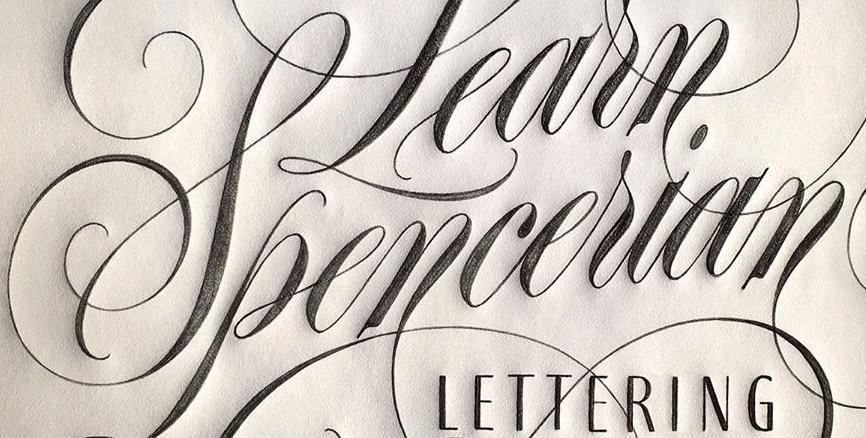 Learn
Spencerian
LETTERING